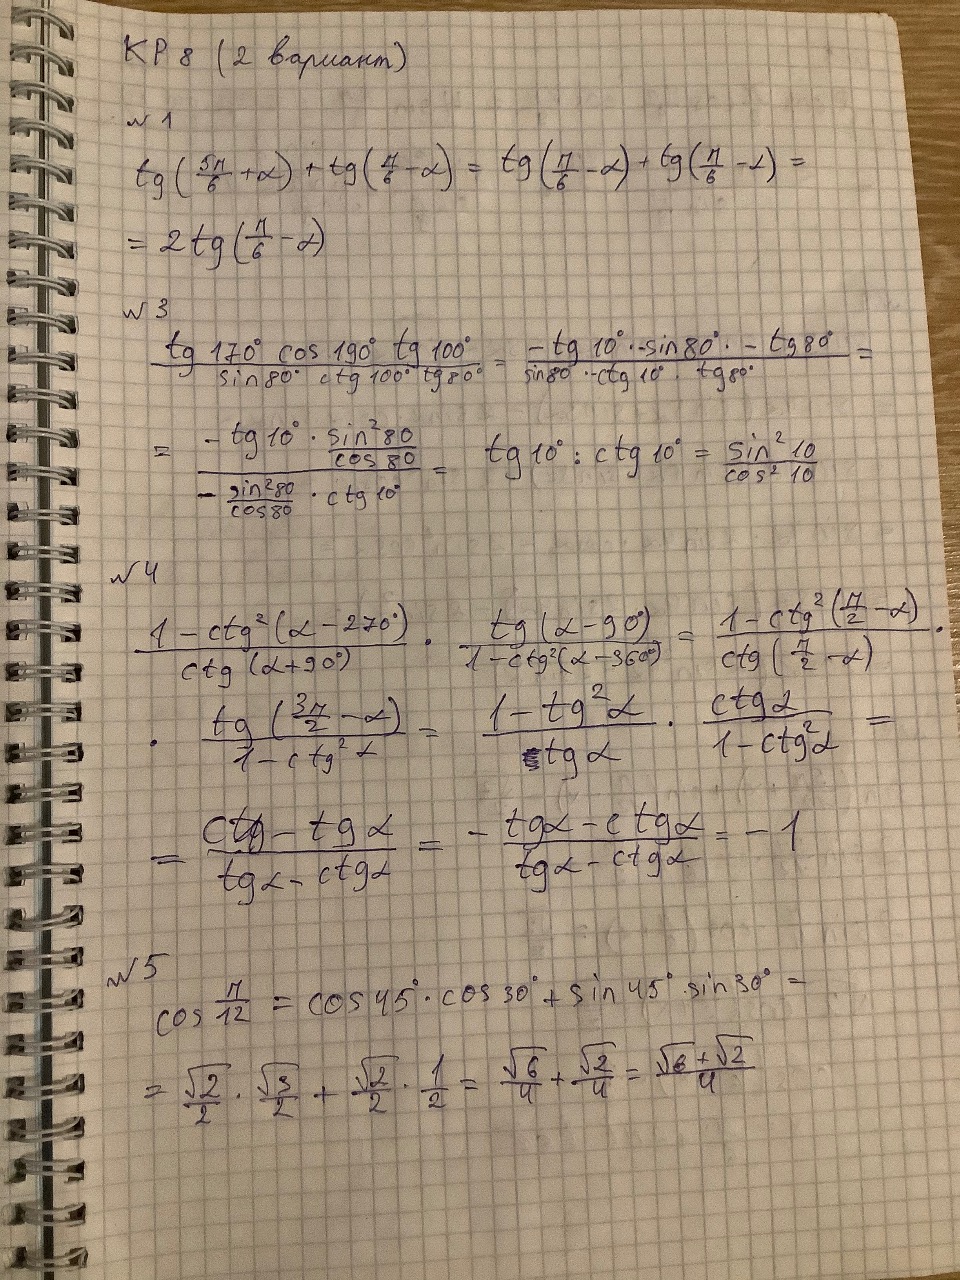 КР 8 (2 вариант)
№ 1
tg(5π/6 + α) + tg(π/6 - α) = tg(π/6 - α) + tg(π/6 - α) =
= 2 tg(π/6 - α)
№ 3
(tg 170° cos 190° tg 100°)/(sin 80° ctg 100° tg 80°) = (- tg 10° · -sin 80° · - tg 80°)/(sin 80° · -ctg 10° · tg 80°) =
= (- tg 10° · sin² 80/cos 80)/(- sin² 80/cos 80 · ctg 10°) = tg 10° : ctg 10° = sin² 10/cos² 10
№ 4
(1 - ctg²(α - 270°))/(ctg(α + 90°)) · (tg(α - 90°))/(1 - ctg²(α - 360°)) = (1 - ctg²(π/2 - α))/(ctg(π/2 - α)) ·
· (tg(3π/2 - α))/(1 - ctg² α) = (1 - tg² α)/(tg α) · (ctg α)/(1 - ctg² α) =
= (ctg - tg α)/(tg α - ctg α) = - (tg α - ctg α)/(tg α - ctg α) = - 1
№ 5
cos π/12 = cos 45° · cos 30° + sin 45° · sin 30° =
= √2/2 · √3/2 + √2/2 · 1/2 = √6/4 + √2/4 = (√6 + √2)/4